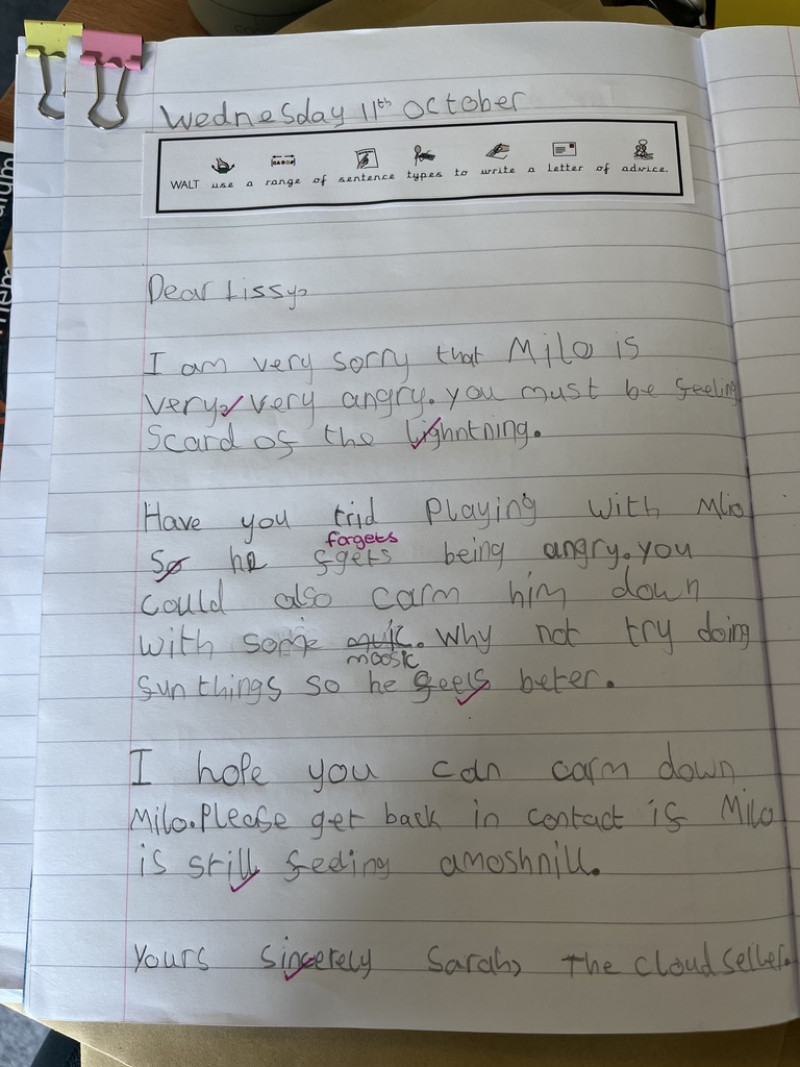 Wednesday 11th October
WALT use a range of sentence types to write a letter of advice.
Dear Lissy,
I am very sorry that Milo is
very, very angry. you must be feeling
scard of the lighntning.
Have you trid playing with Mlio
forgets
so he fgets being angry. you
could also carm him down
with some . Why not try doing
moosic
fun things so he feels beter.
I hope you can carm down
Milo. Please get back in contact if Milo
is still feeling amoshnill.
Yours sincerely Sarah, The cloud seller.